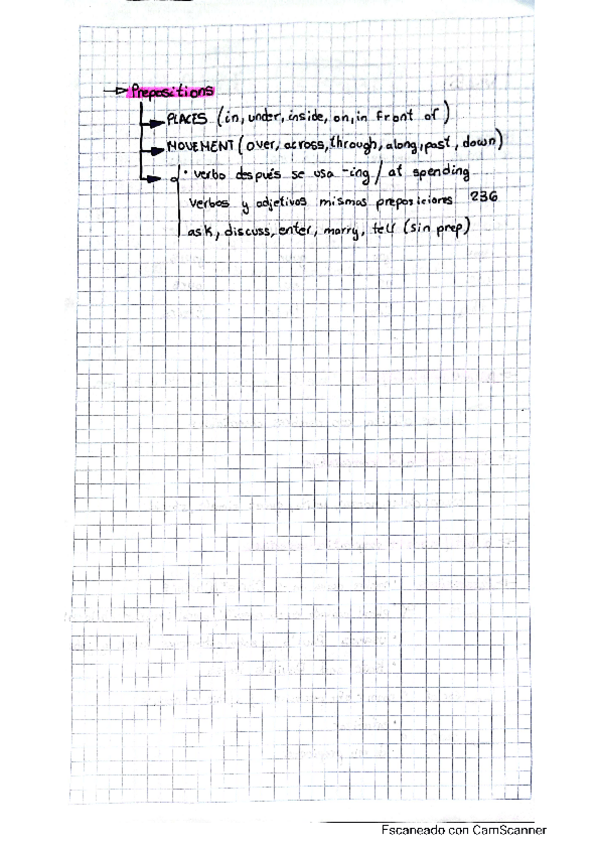 → Prepositions
→ PLACES (in, under, inside, on, in front of)
→ MOVEMENT (over, across, through, along, past, down)
→ • verbo después se usa -ing / at spending
verbos y adjetivos mismas preposiciones 236
ask, discuss, enter, marry, tell (sin prep)
Escaneado con CamScanner